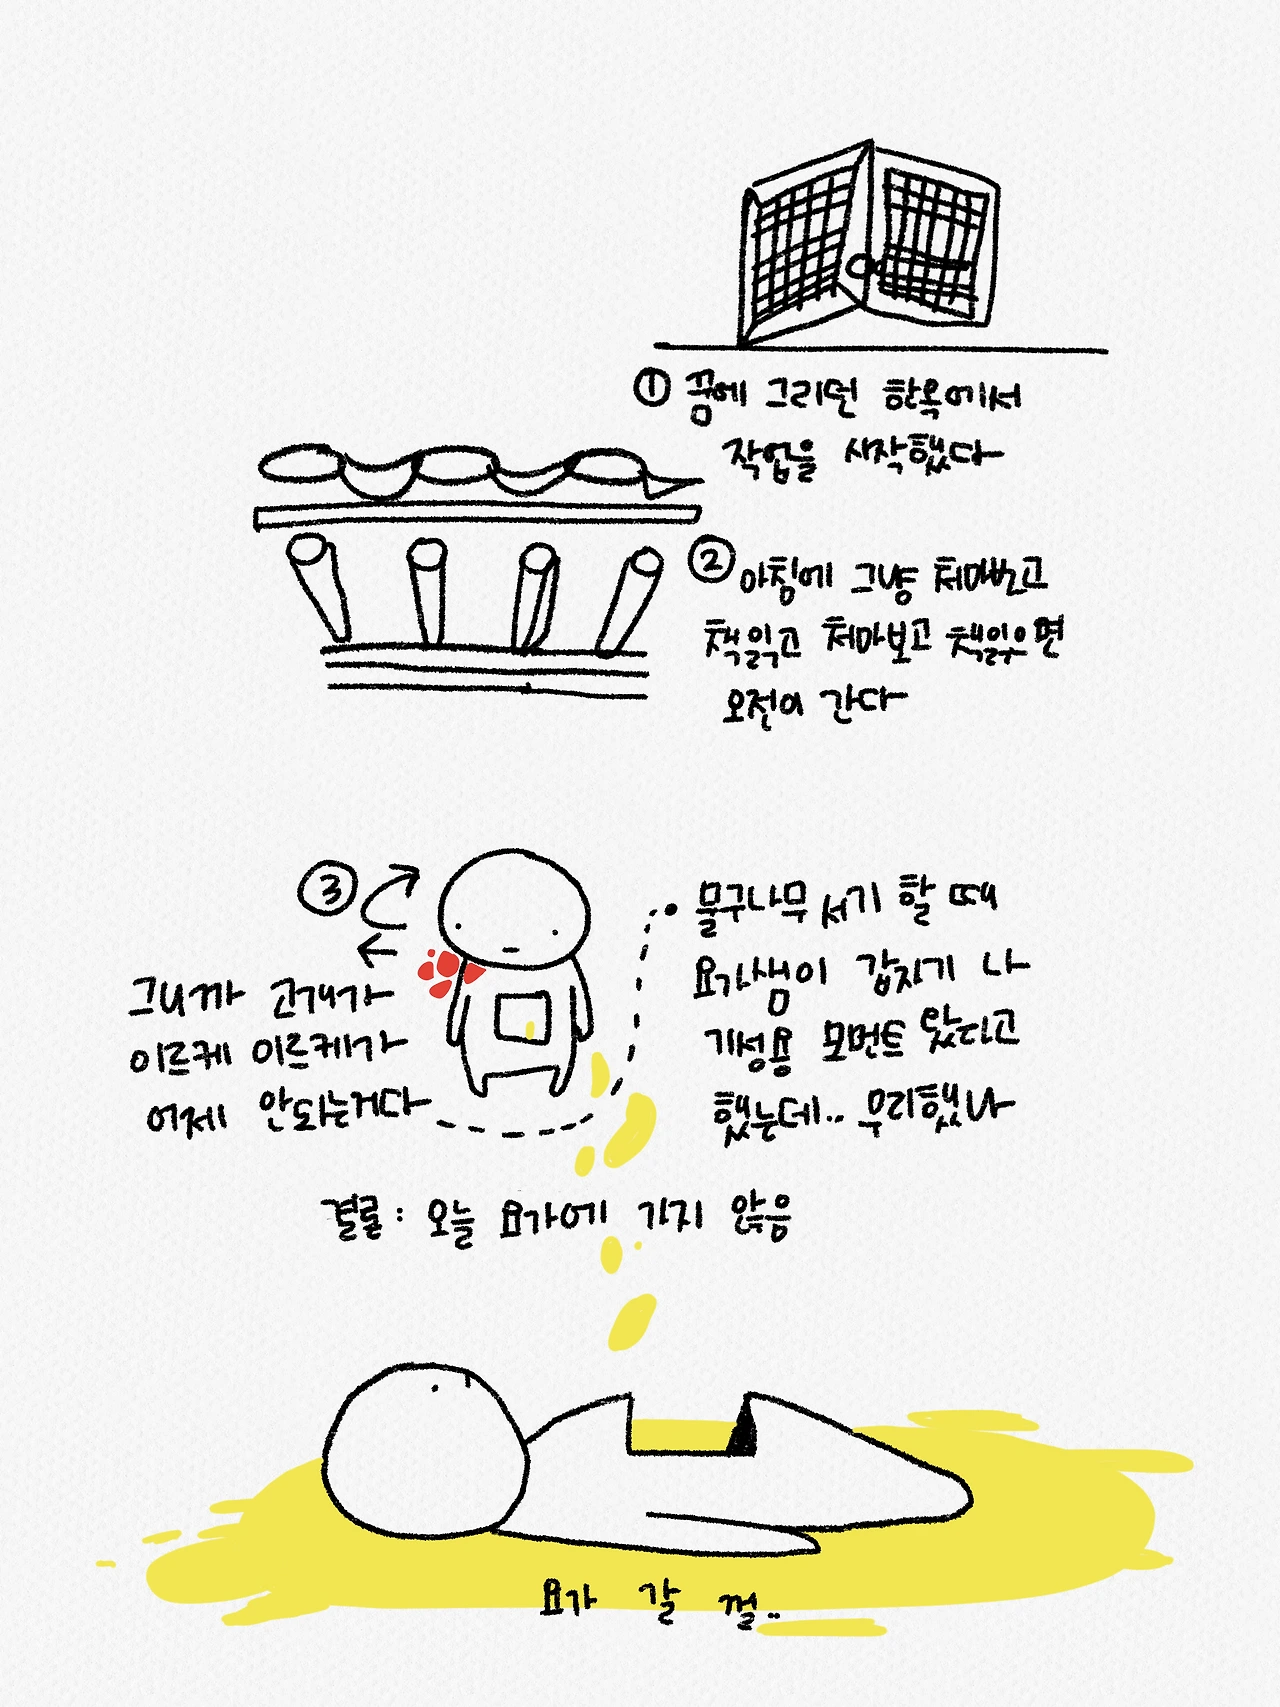 ① 꿈에 그리던 한옥에서
작업을 시작했다
② 아침에 그냥 처마보고
책읽고 처마보고 책읽으면
오전이 간다
③
그니까 고개가
이르케 이르케가
어제 안되는거다
물구나무 서기 할 때
요가샘이 갑자기 나
기성용 모먼트 왔다고
했는데.. 무리했나
결론 : 오늘 요가에 가지 않음
요가 갈 껄..